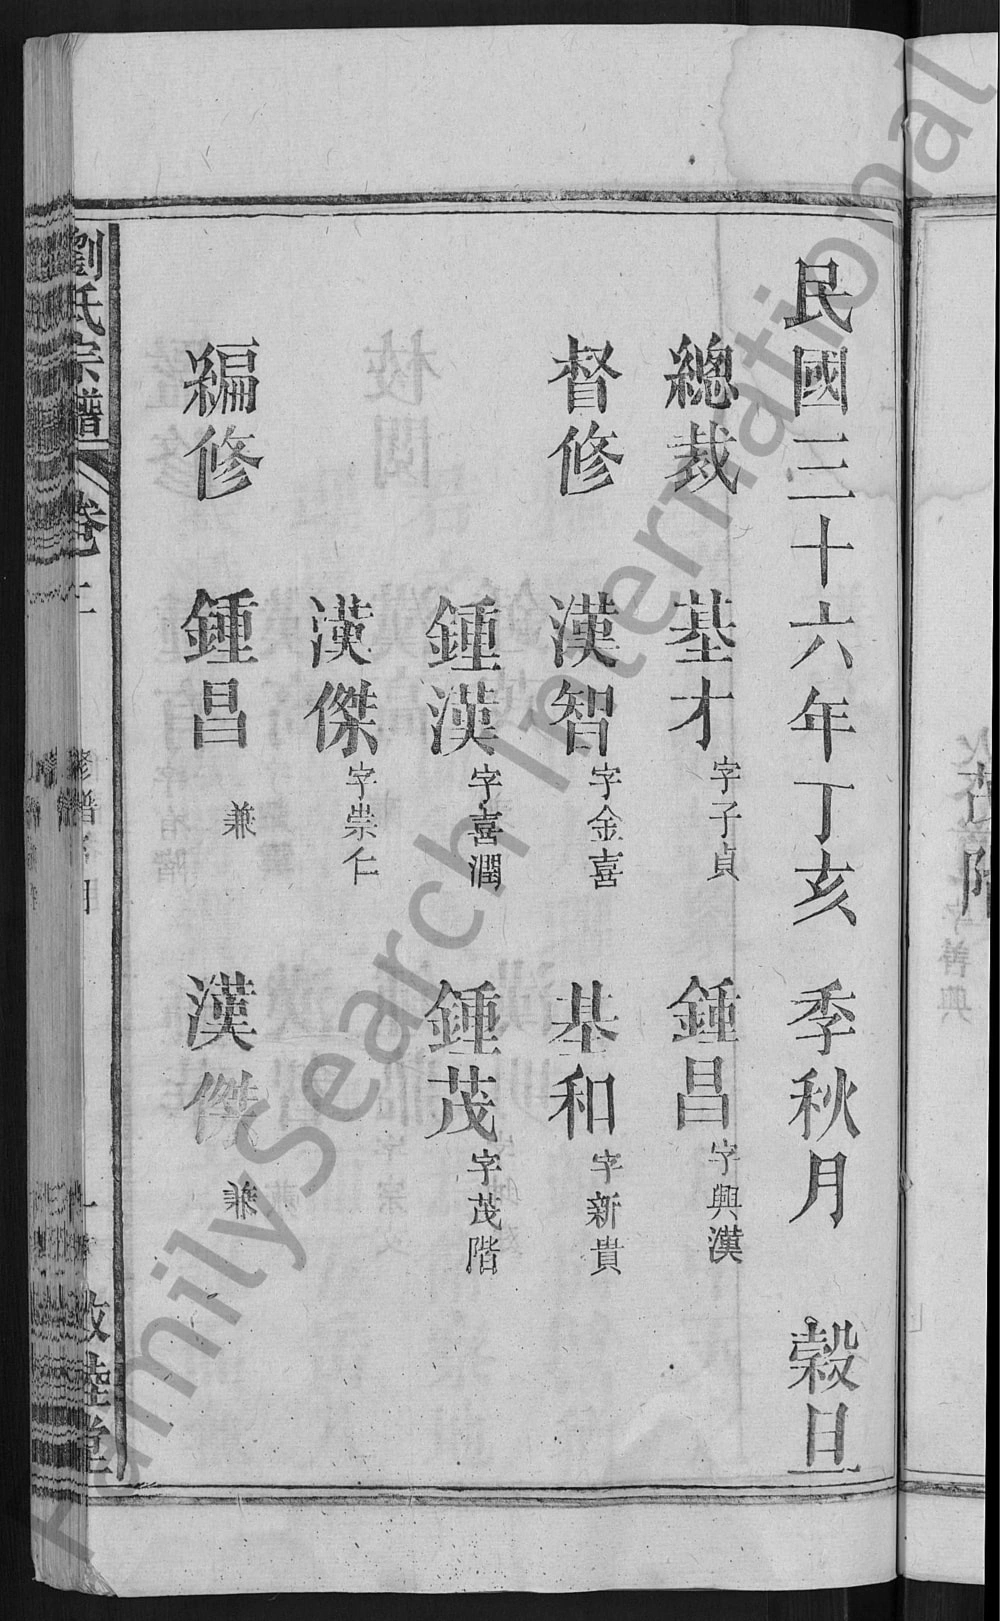 民國三十六年丁亥 季秋月 穀旦
總裁 基才 字子貞 鍾昌 字興漢
督修 漢智 字金喜 基和 字新貴
鍾漢 字喜潤 鍾茂 字茂階
漢傑 字崇仁
編修 鍾昌 兼 漢傑 兼
劉氏宗譜 卷 一 敦睦堂
FamilySearch International